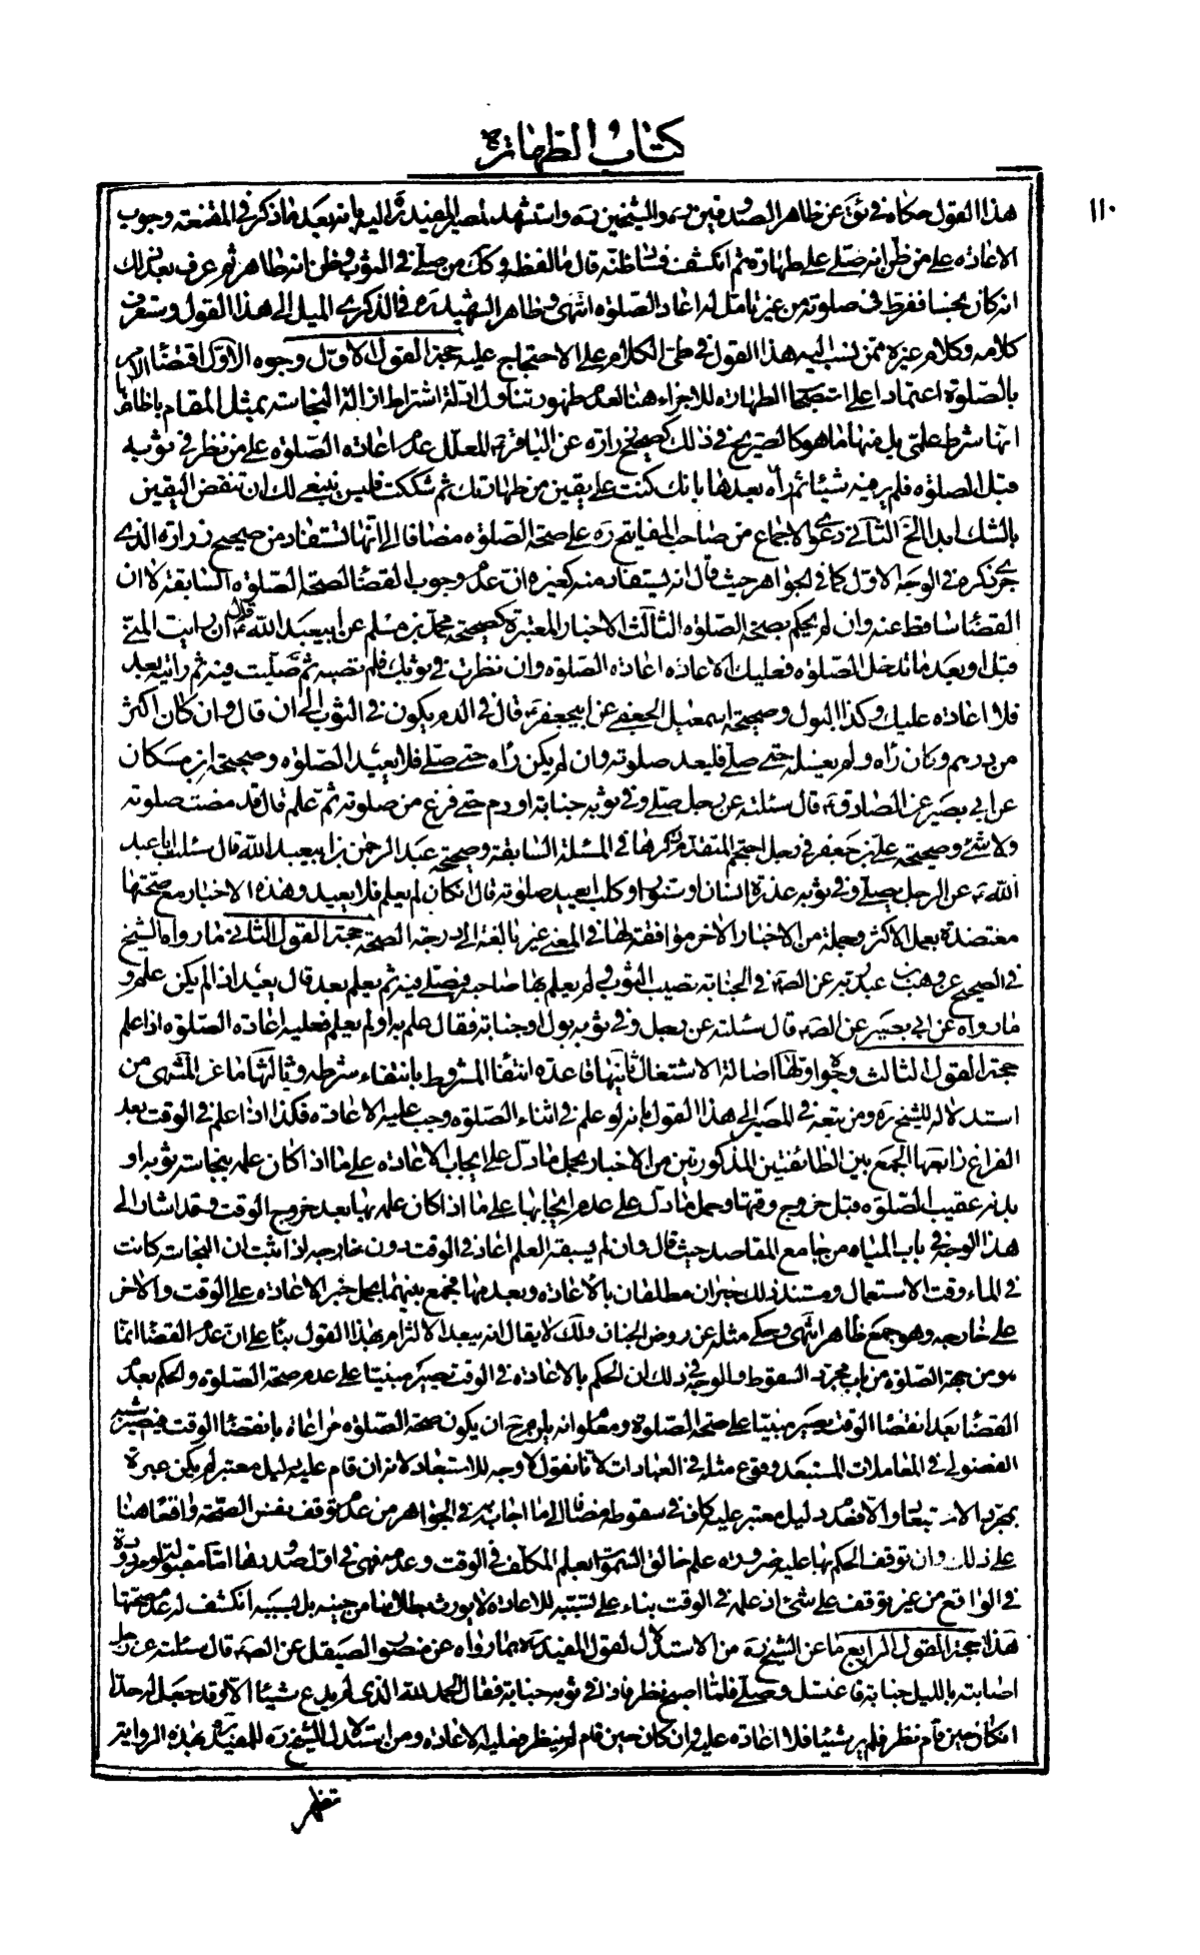 كتاب الطهارة
١١٠
هذا القول حكاه في ئق عن ظاهر الصدوقين ره والشيخين ره واستشهد لمصير المفيد ره اليه بانه بعد ما ذكر في المقنعة وجوب
الاعادة على من ظن انه صلى على طهارة ثم انكشف فساد ظنه قال ما لفظه وكك من صلى في الثوب وظن انه طاهر ثم عرف بعد ذلك
انه كان نجسا ففرط في صلوته من غير تأمل له اعاد الصلوة انتهى وظاهر الشهيد ره في الذكرى الميل الى هذا القول وستعرف
كلامه وكلام غيره ممن نسب اليه هذا القول في طي الكلام على الاحتجاج عليه حجة القول الاول وجوه الاول اقتضاء الامر
بالصلوة اعتمادا على استصحاب الطهارة للاجزاء هنا لعدم ظهور تناول ادلة اشتراط ازالة النجاسة بمثل المقام بل ظاهرها
انها شرط علمي بل منها ما هو كالصريح في ذلك كصحيح زرارة عن الباقر ع المعلل عدم اعادة الصلوة على من نظر في ثوبه
قبل الصلوة فلم ير فيه شيئا ثم رآه بعدها بانك كنت على يقين من طهارتك ثم شككت فليس ينبغي لك ان تنقض اليقين
بالشك ابدا الخ الثاني دعوى الاجماع من صاحب المفاتيح ره على صحة الصلوة مضافا الى انها تستفاد من صحيح زرارة الذي
جرى ذكره في الوجه الاول كما في الجواهر حيث قال انه يستفاد منه كغيره ان عدم وجوب القضاء لصحة الصلوة السابقة لا ان
القضاء ساقط عنه وان لم يحكم بصحة الصلوة الثالث الاخبار المعتبرة كصحيحة محمد بن مسلم عن ابيعبد الله ع قال ان رايت المني
قبل او بعد ما تدخل الصلوة فعليك الاعادة اعادة الصلوة وان نظرت في ثوبك فلم تصبه ثم صليت فيه ثم رايته بعد
فلا اعادة عليك وكذا البول وصحيحة اسمعيل الجعفي عن ابيجعفر ع قال في الدم يكون في الثوب الى ان قال وان كان اكثر
من درهم وكان رآه ولم يغسله حتى صلى فليعد صلوته وان لم يكن رآه حتى صلى فلا يعيد الصلوة وصحيحة ابن مسكان
عن ابي بصير عن الصادق ع قال سئلته عن رجل صلى وفي ثوبه جنابة او دم حتى فرغ من صلوته ثم علم قال قد مضت صلوته
ولا شئ وصحيحة علي بن جعفر في رجل احتجم المتقدم ذكرها في المسئلة السابقة وصحيحة عبد الرحمن بن ابيعبد الله قال سئلت ابا عبد
الله ع عن الرجل يصلي وفي ثوبه عذرة انسان او سنور او كلب ايعيد صلوته قال ان كان لم يعلم فلا يعيد وهذه الاخبار مع صحتها
معتضدة بعمل الاكثر وجملة من الاخبار الاخر موافقة لها في المعنى غير بالغة الى درجة الصحة حجة القول الثاني ما رواه الشيخ
في الصحيح عن وهب بن عبد ربه عن الصم في الجنابة تصيب الثوب ولم يعلم بها صاحبه فيصلي فيه ثم يعلم بعد قال يعيد اذا لم يكن علم و
ما رواه عن ابي بصير عن الصم قال سئلته عن رجل وفي ثوبه بول او جنابة فقال علم به او لم يعلم فعليه اعادة الصلوة اذا علم
حجة القول الثالث وجوه اولها اصالة الاشتغال ثانيها قاعدة انتفاء المشروط بانتفاء شرطه وثالثها ما عن المنتهى من
استدلاله للشيخ ره ومن تبعه في المصير الى هذا القول بانه لو علم في اثناء الصلوة وجب عليه الاعادة فكذا اذا علم في الوقت بعد
الفراغ رابعها الجمع بين الطائفتين المذكورتين من الاخبار بحمل ما دل على ايجاب الاعادة على ما اذا كان علمه بنجاسة ثوبه او
بدنه عقيب الصلوة قبل خروج وقتها وحمل ما دل على عدم ايجابها على ما اذا كان علمه بها بعد خروج الوقت وقد اشار الى
هذا الوجه في باب المياه من جامع المقاصد حيث قال وان لم يسبقه العلم اعاد في الوقت دون خارجه اذا ثبت ان النجاسات كانت
في الماء وقت الاستعمال ومستند ذلك خبران مطلقان بالاعادة وبعدمها فجمع بينهما بحمل خبر الاعادة على الوقت والاخر
على خارجه وهو جمع ظاهر انتهى وحكى مثله عن روض الجنان ولك لا يقال انه يبعد الالتزام بهذا القول بناء على ان عدم القضاء انما
هو من جهة الصلوة من باب مجرد السقوط والوجه في ذلك ان الحكم بالاعادة في الوقت يصير مبنيا على عدم صحة الصلوة والحكم بعدم
القضاء بعد انقضاء الوقت يصير مبنيا على صحة الصلوة ومعلوم انه يلزم ح ان يكون صحة الصلوة مراعاة بانقضاء الوقت فيصير شبه
الفضولي في المعاملات المستبعد وقوع مثله في العبادات لانا نقول لا وجه للاستبعاد لانه ان قام عليه دليل معتبر لم يكن عبرة
بمجرد الاستبعاد والا فعدم دليل معتبر عليه كاف في سقوطه مضافا الى ما اجاب به في الجواهر من عدم توقف نفس الصحة واقعا هنا
على ذلك وان توقف الحكم بها عليه ضرورة علم خالق السموات بعلم المكلف في الوقت وعدمه فهي في اول صدورها اما مقبولة او مردودة
في الواقع من غير توقف على شئ اذ علمه في الوقت بناء على تسبيبه للاعادة لا يورث بطلانا من حينه بل بسببه انكشف له عدم صحتها
هذا حجة القول الرابع ما عن الشيخ ره من الاستدلال لقول المفيد ره بما رواه عن منصور الصيقل عن الصم قال سئلته عن رجل
اصابته بالليل جنابة فاغتسل وصلى فلما اصبح نظر فاذا في ثوبه جنابة فقال الحمد لله الذي لم يدع شيئا الا وقد جعل له حدا
ان كان حين قام نظر فلم ير شيئا فلا اعادة عليه وان كان حين قام لم ينظر فعليه الاعادة ومن استدلال الشيخ ره للمفيد ره بهذه الرواية
تظهر